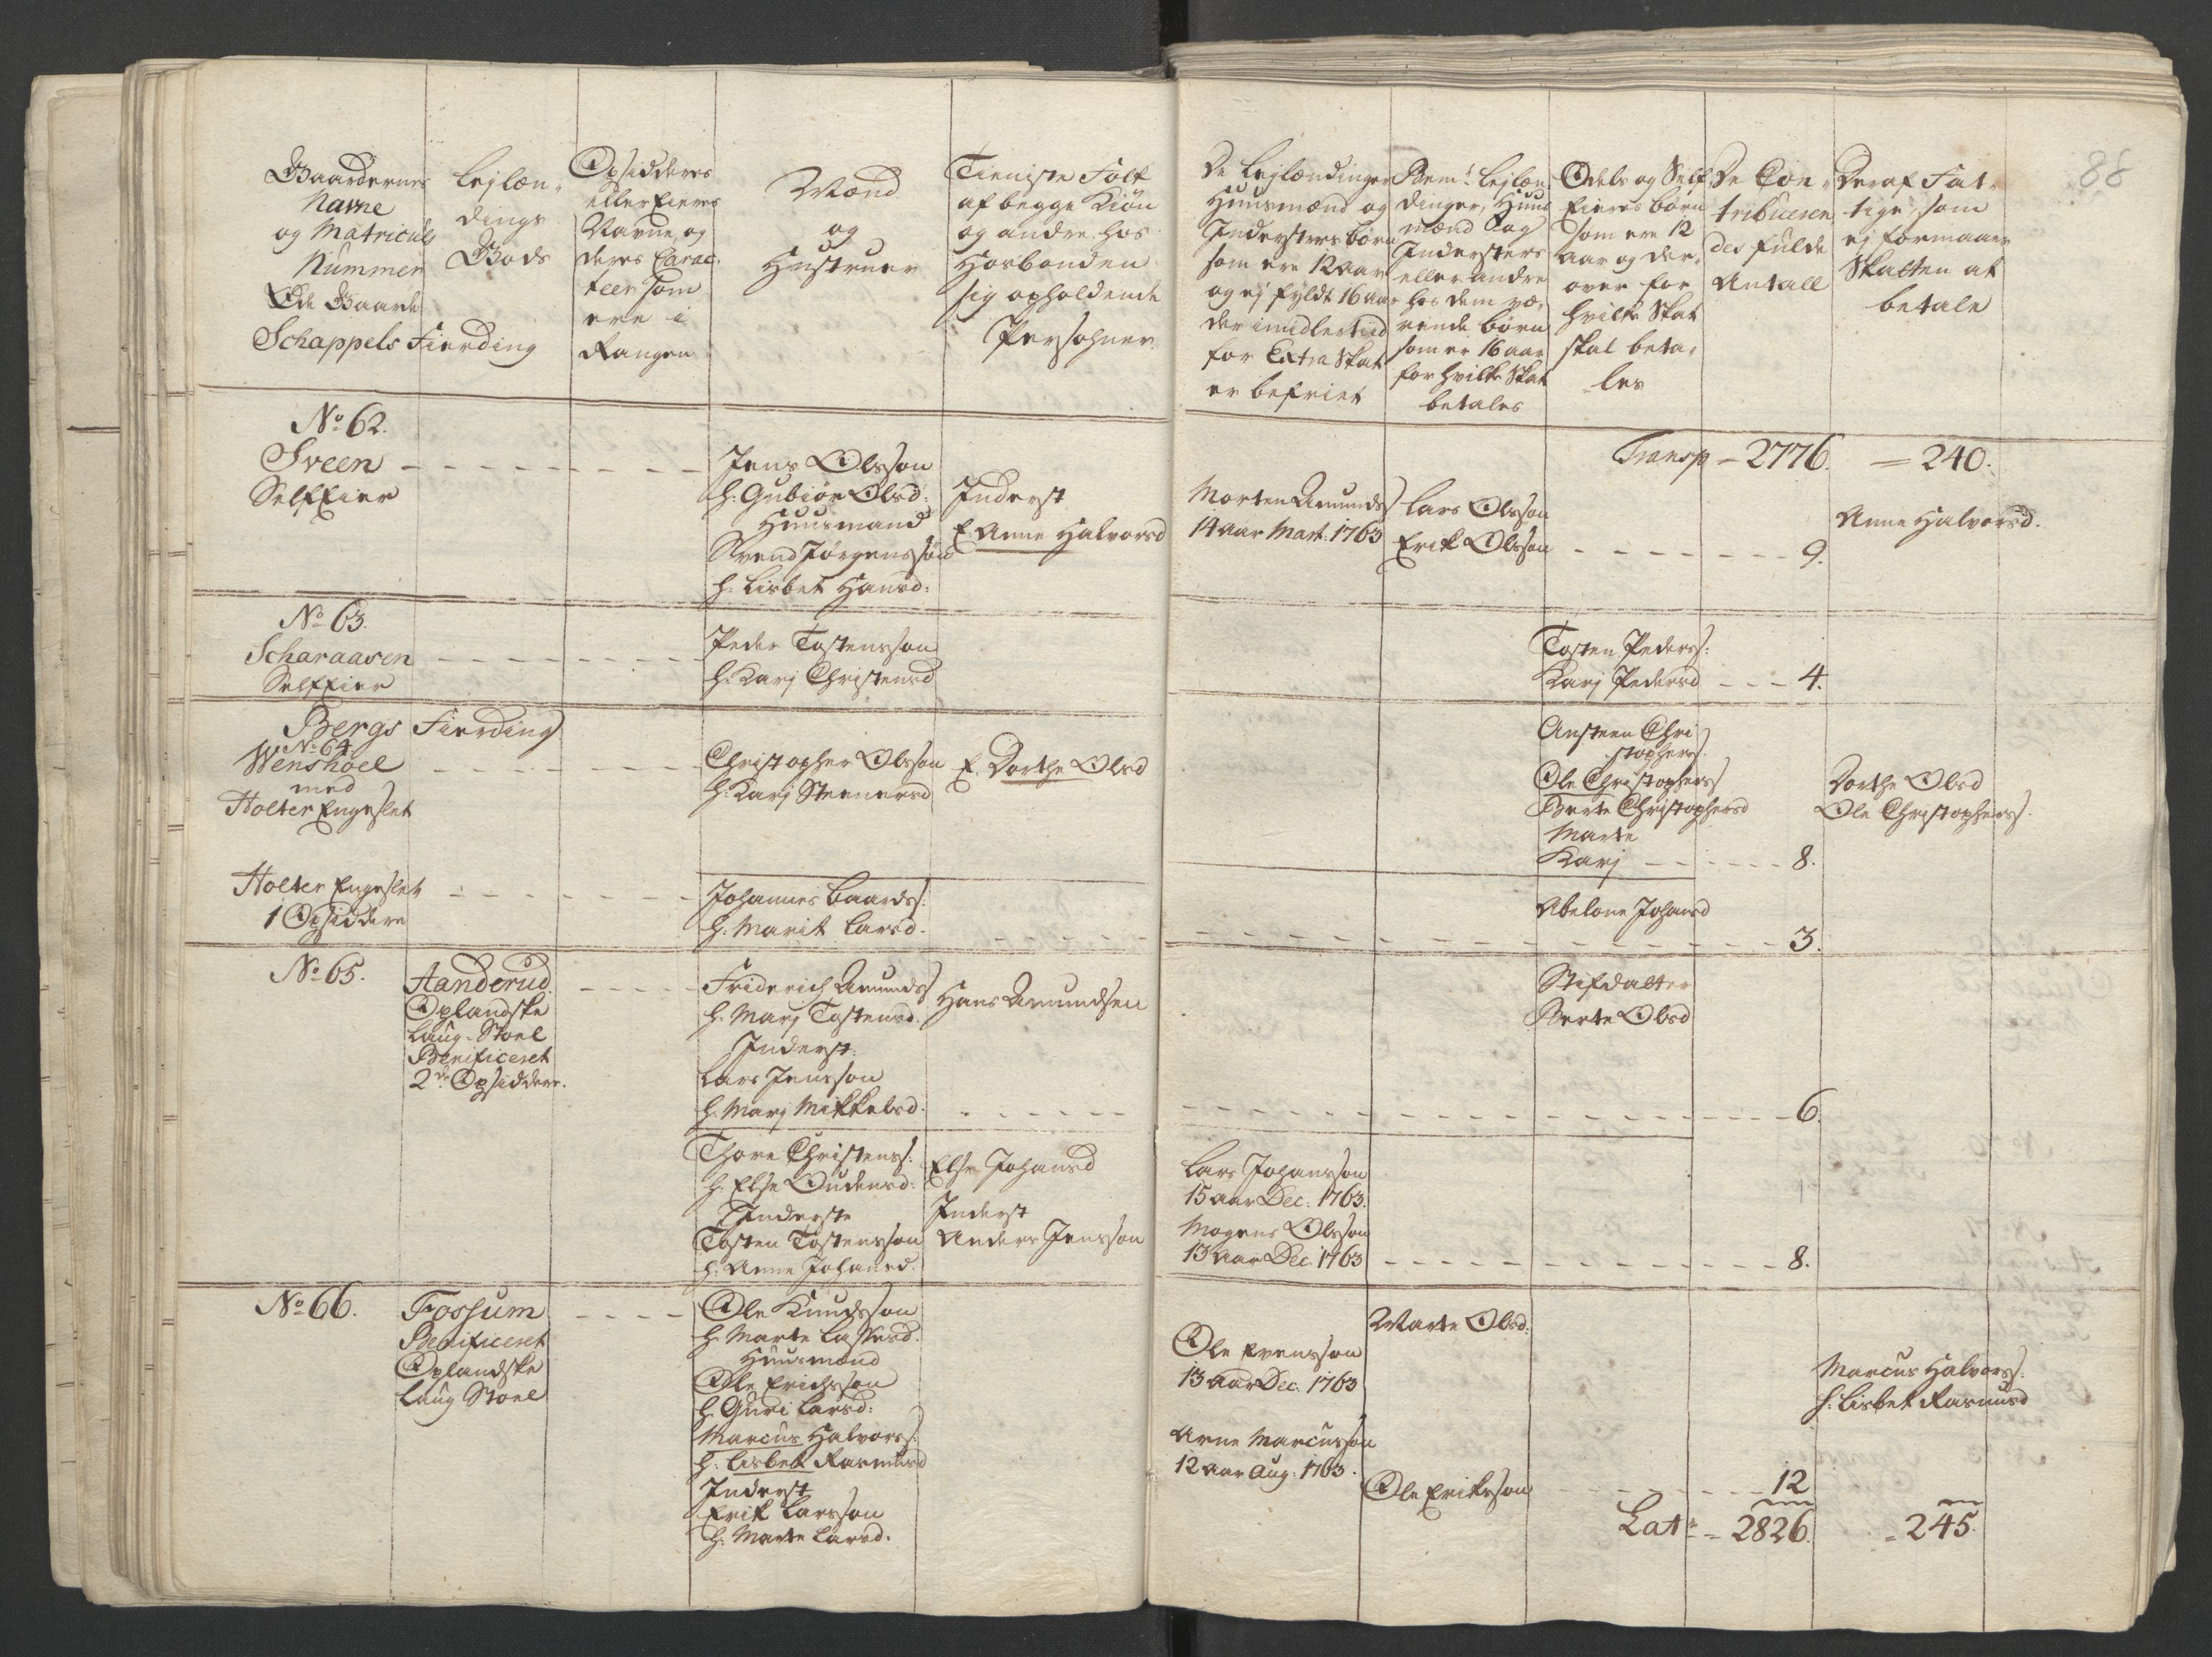 Gaardernes
Navne
og Matriculs
Nummer
Ede Gaarde
Schappels Fierding
Lejlæn-
dings
Gods
Opsidderes
eller Eieres
Navne, og
deres Carac-
teer som
ere i
Rangen
Mænd
og
Hustruer
Tieniste Folk
af begge Kiøn
og andre hos
Hosbonden
sig opholdende
Persohner
De Lejlændinger
Huusmænd og
Inderster børn
som ere 12 aar
og ej fyldt 16 aar
der imidlertid
for Extra Skat
er befriet
Bem.te Lejlæn-
dinger, Huus
mænd og
Inderster
eller andre
hos dem væ-
rende børn
som er 16 aar
for hvilke Skat
betales
Odels og Self
Eieres børn
som ere 12
aar og der-
over for
hvilke Skat
skal beta-
les
De Con-
tribueren
des fulde
Antall
Deraf Fat-
tige, som
ej formaaer
Skatten at
betale
88
Transp = 2776. = 240.
No 62.
Sveen
SelfEier
Jens Olsson
h. Gubiør Olsd:
Huusmand
Svend Jørgensson
h. Lisbet Hansd:
Inderst
E. Anne Halvorsd
Morten Amunds
14 aar Mart. 1763
Lars Olsson
Erik Olsson
9.
Anne Halvorsd.
No 63.
Scharaasen
SelfEier
Peder Tostensson
h. Karj Christensd
Tosten Peders:
Karj Pedersd
4.
Bergs Fierding
No 64.
Wenshoel
med
Holter Engeslet
Christopher Olsson
h. Karj Steenersd
E. Dorthe Olsd
Ansteen Chri
stophers.
Ole Christophers
Berte Christophersd
Marte
Karj
8.
Dorthe Olsd
Ole Christophers.
Holter Engeslet
1 Opsiddere
Johannes Baards:
h. Marit Larsd.
Abelone Johansd
3.
No 65.
Aanderud
Oplandske
Laug-Stoel
Benificeret
2de Opsiddere.
Friderich Amunds
h. Marj Tostensd.
Inderst:
Lars Jensson
h. Marj Mikkelsd.
Hans Amundsen
Stifdatter
Berte Olsd
6.
Thore Christens:
h. Else Oudensd:
Inderste
Tosten Tostensson
h. Anne Johansd.
Else Johansd
Inderst
Anders Jensson
Lars Johansson
15 aar Dec. 1763.
Mogens Olsson
13 aar Dec. 1763
8.
No 66.
Fossum
Benificeret
Oplandske
Laug Stoel
Ole Knudsson
h. Marte Lassesd.
Huusmænd
Ole Erichsson
h. Guri Larsd:
Marcus Halvors:
h. Lisbet Rasmusd
Inderst
Erik Larsson
h. Marte Larsd.
Marte Olsd:
Ole Evensson
13 aar Dec. 1763
Arne Marcusson
12 aar Aug. 1763.
Ole Eriksson
12
Marcus Halvors:
h. Lisbet Rasmusd
Lat: = 2826. = 245.